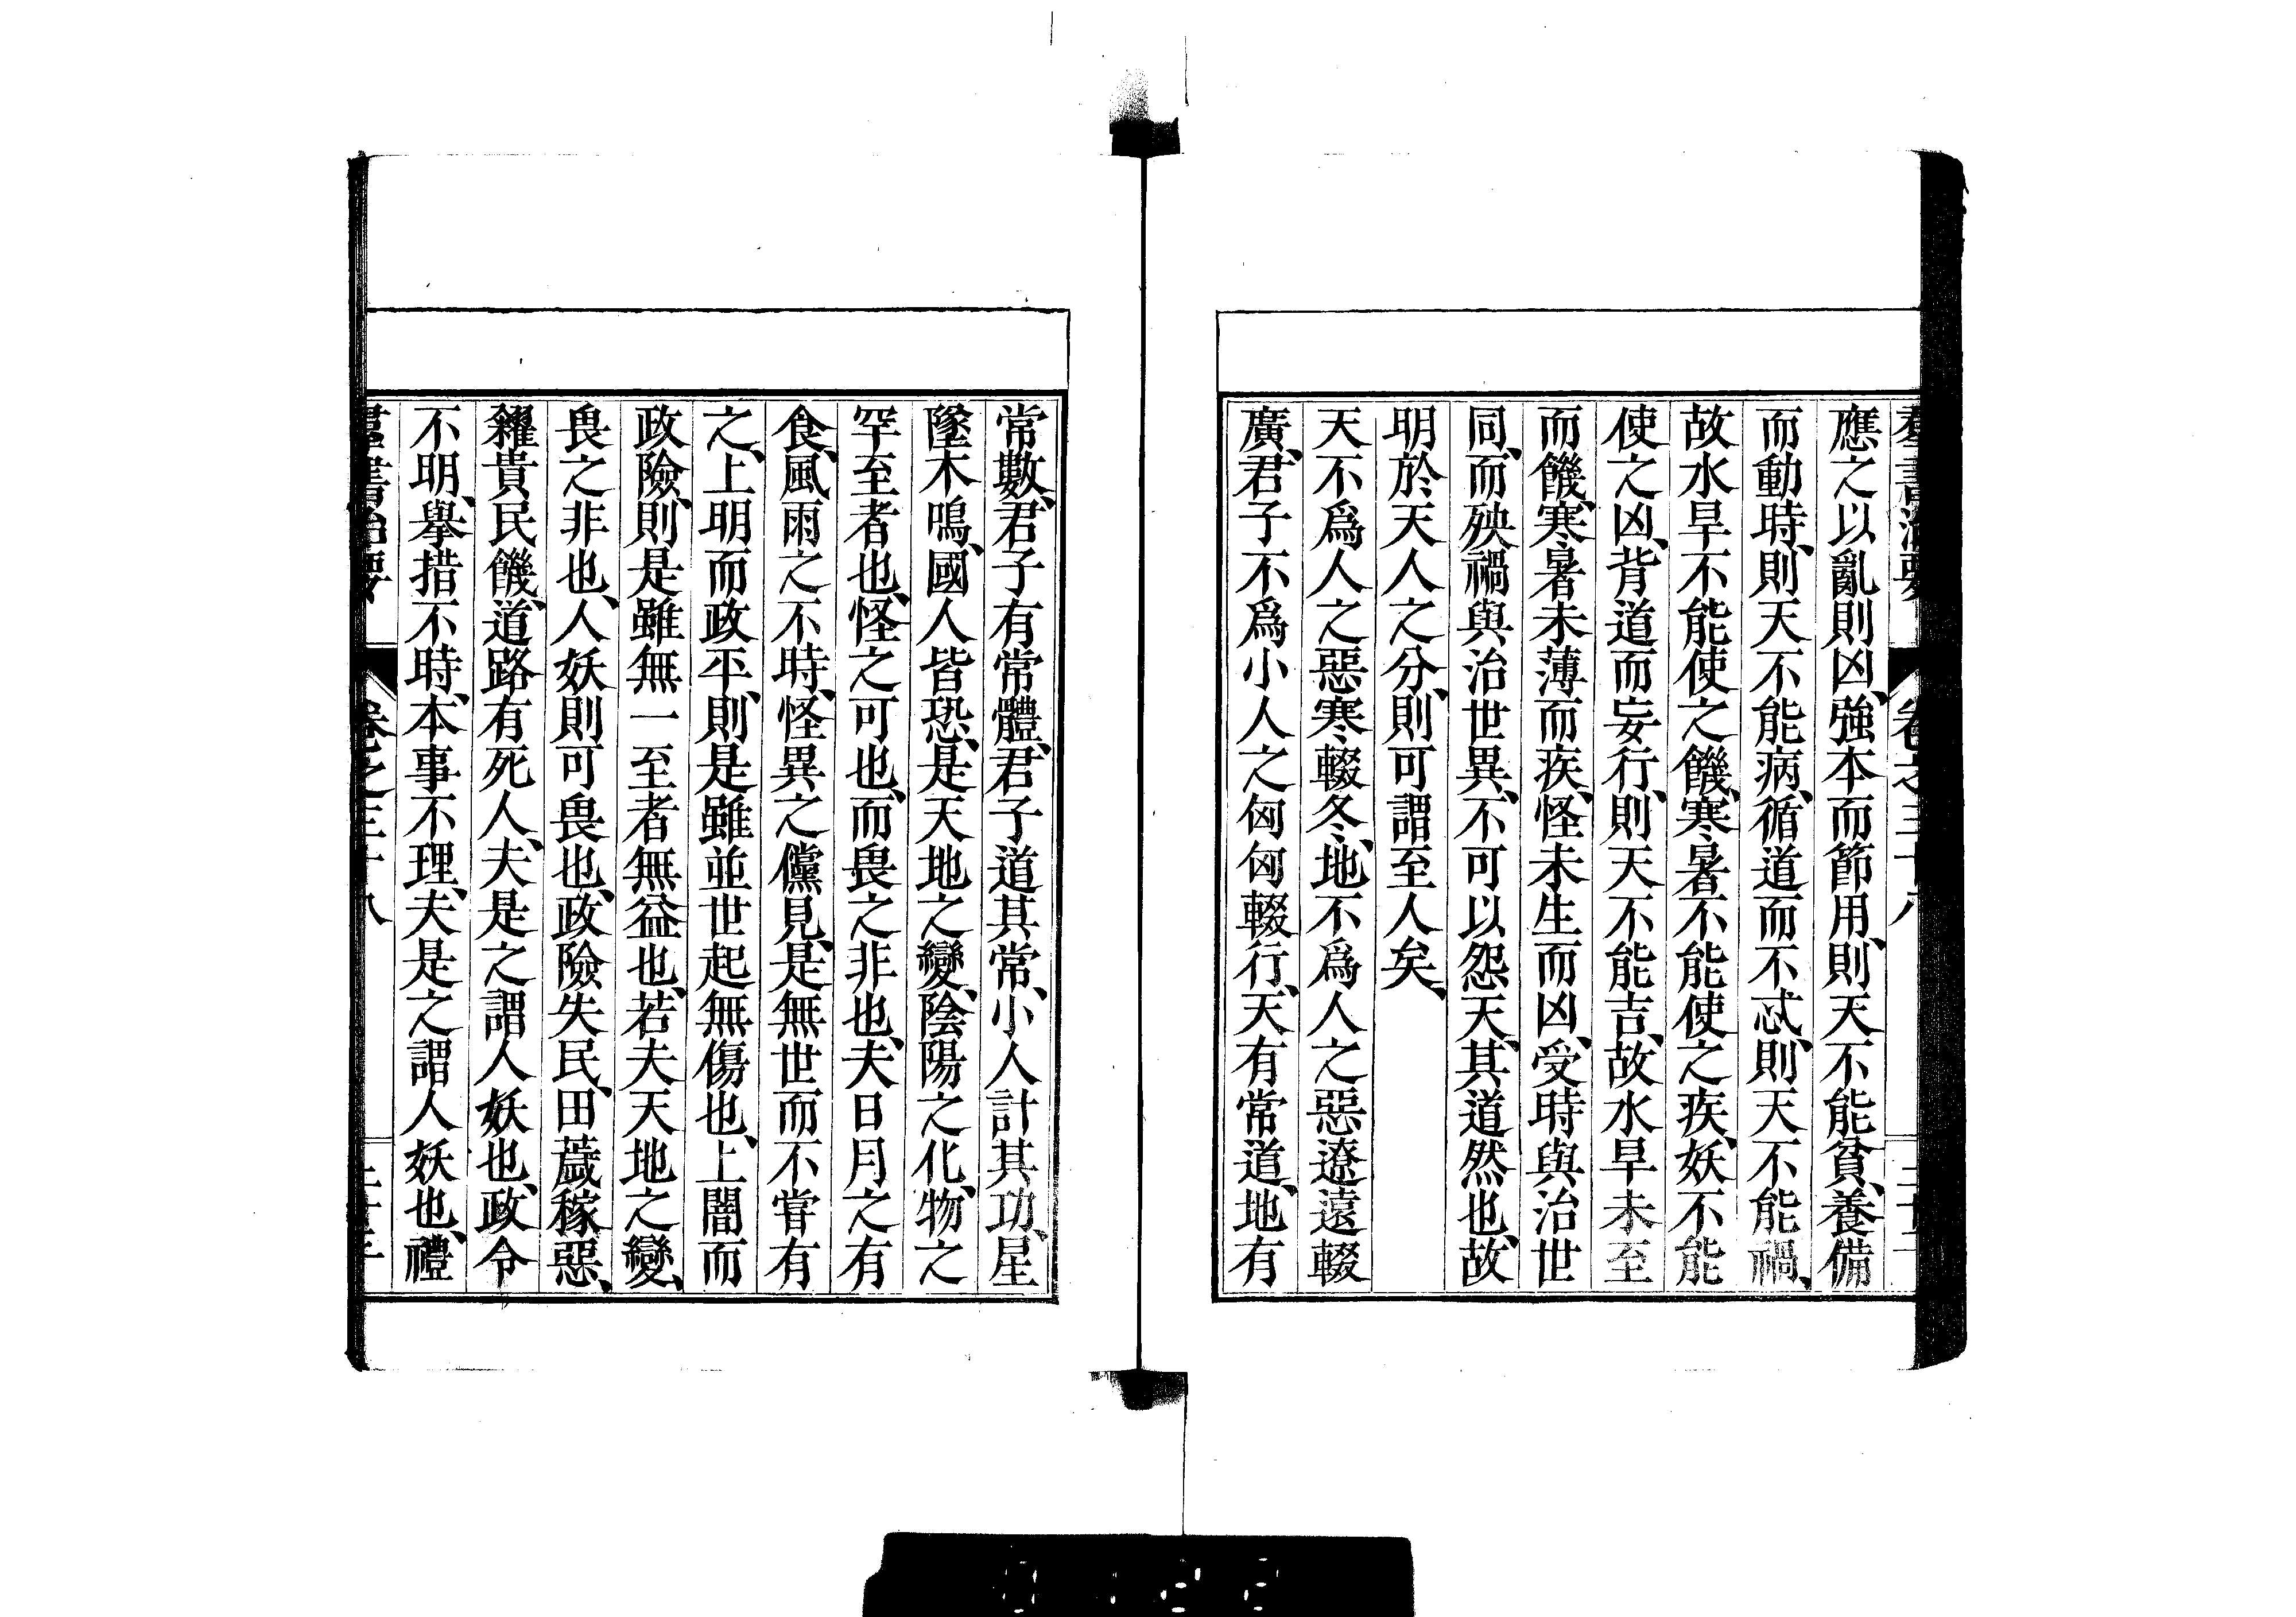 羣書治要 卷之三十八
應之以亂則凶、強本而節用、則天不能貧、養備
而動時、則天不能病、循道而不忒、則天不能禍、
故水旱不能使之饑、寒暑不能使之疾、妖不能
使之凶、背道而妄行、則天不能吉、故水旱未至
而饑、寒暑未薄而疾、怪未生而凶、受時與治世
同、而殃禍與治世異、不可以怨天、其道然也、故
明於天人之分、則可謂至人矣、
天不爲人之惡寒輟冬、地不爲人之惡遼遠輟
廣、君子不爲小人之匈匈輟行、天有常道、地有
常數、君子有常體、君子道其常、小人計其功、星
墜木鳴、國人皆恐、是天地之變、陰陽之化、物之
罕至者也、怪之可也、而畏之非也、夫日月之有
食、風雨之不時、怪異之儻見、是無世而不甞有
之、上明而政平、則是雖並世起無傷也、上闇而
政險、則是雖無一至者無益也、若夫天地之變、
畏之非也、人妖則可畏也、政險失民、田薉稼惡、
糴貴民饑、道路有死人、夫是之謂人妖也、政令
不明、舉措不時、本事不理、夫是之謂人妖也、禮
羣書治要 卷之三十八